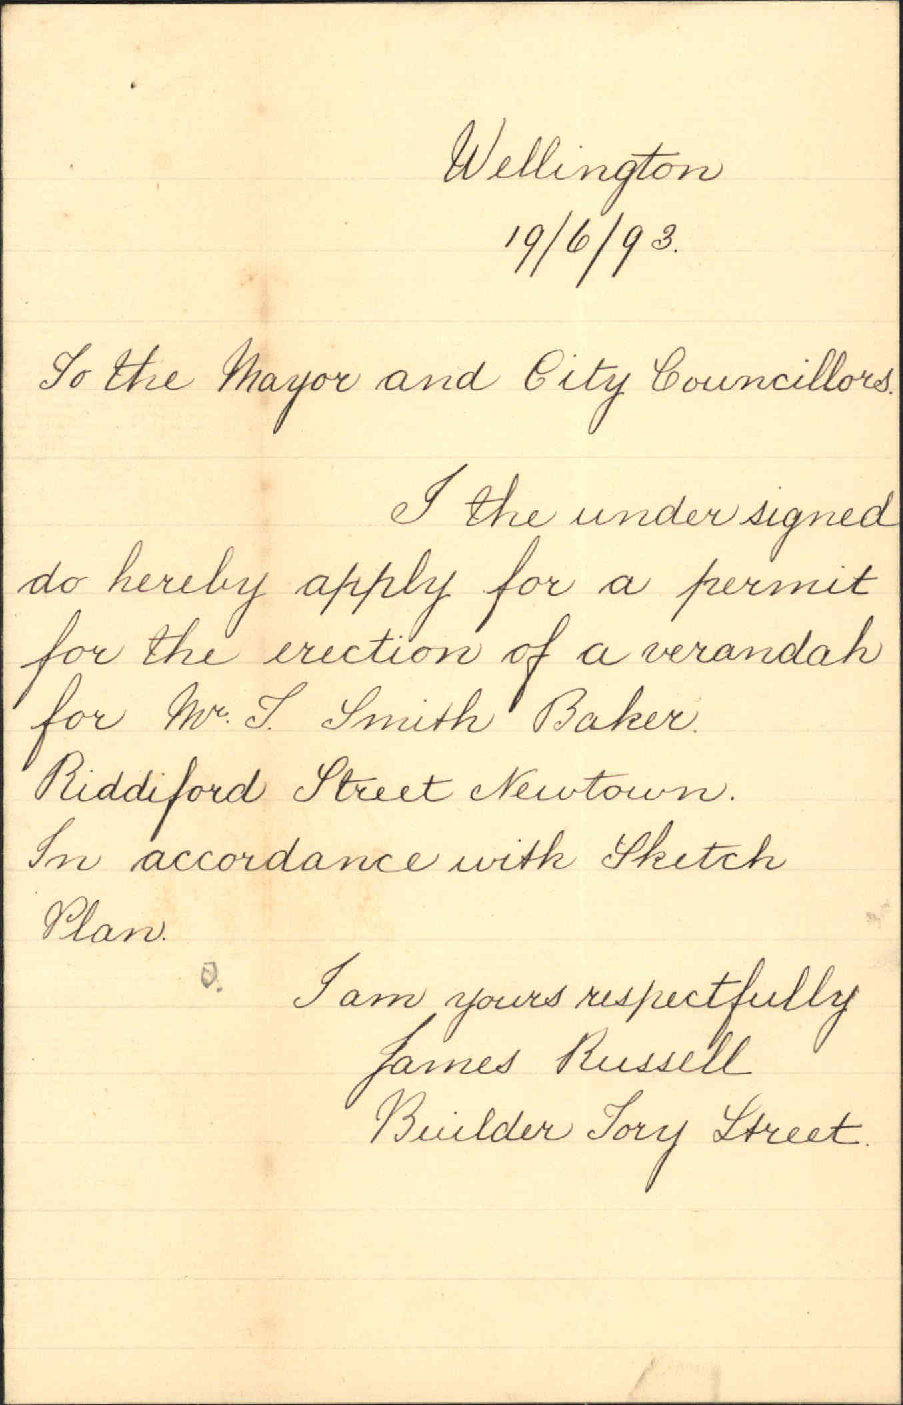 Wellington
19/6/93.
To the Mayor and City Councillors.
I the undersigned
do hereby apply for a permit
for the erection of a verandah
for Mr. T. Smith Baker.
Riddiford Street Newtown.
In accordance with Sketch
Plan.
I am yours respectfully
James Russell
Builder Tory Street.